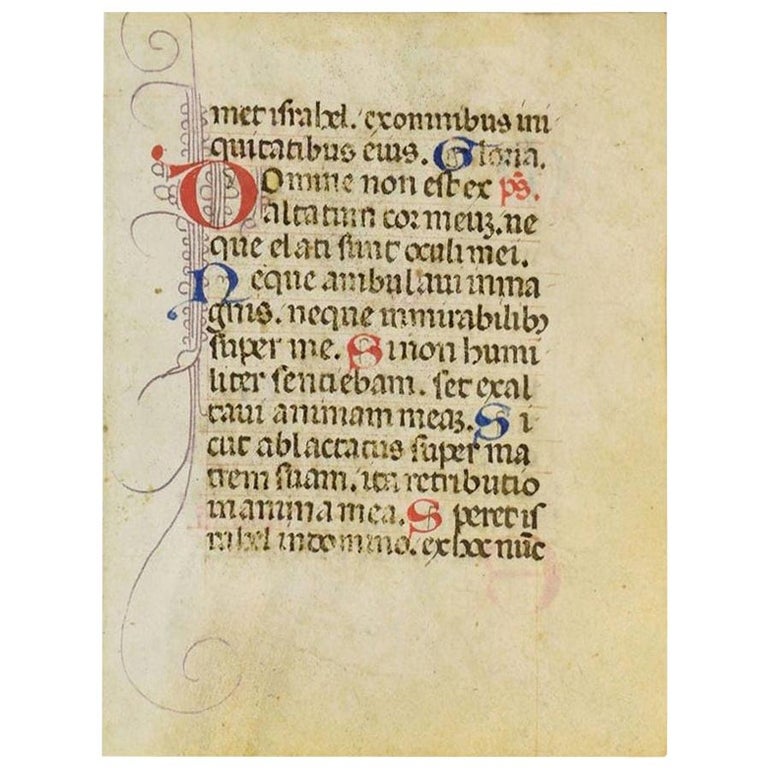 met israhel. ex omnibus ini
quitatibus eius. Gloria.
Domine non est ex ps.
altatum cor meuz. ne
que elati sunt oculi mei.
Neque ambulaui in ma
gnis. neque in mirabilibꝫ
super me. Si non humi
liter sentiebam. set exal
taui animam meaz. Si
cut ablactatus super ma
trem suam. ita retributio
in anima mea. Speret is
rahel in domino. ex hoc nũc